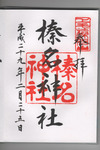 奉拝
榛名神社
平成二十九年十二月二十五日
榛名
神社